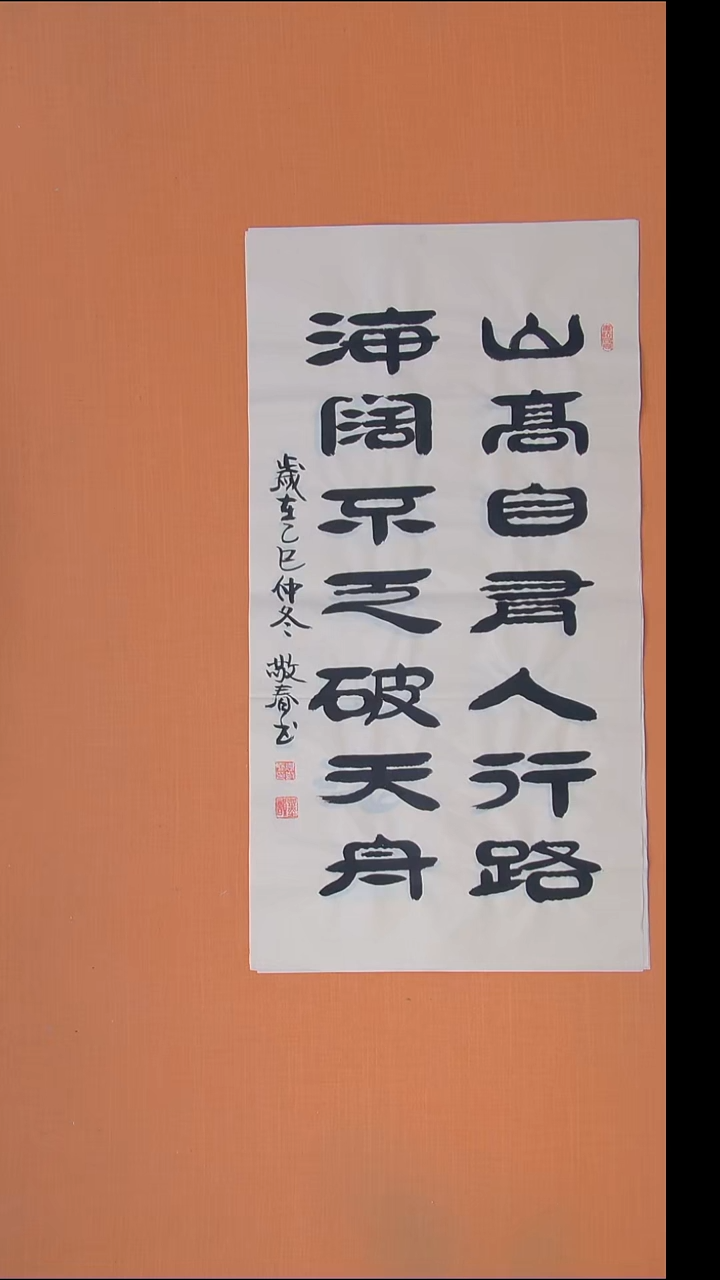 山高自有人行路
海阔不乏破天舟
歲在乙巳仲冬 敬春书